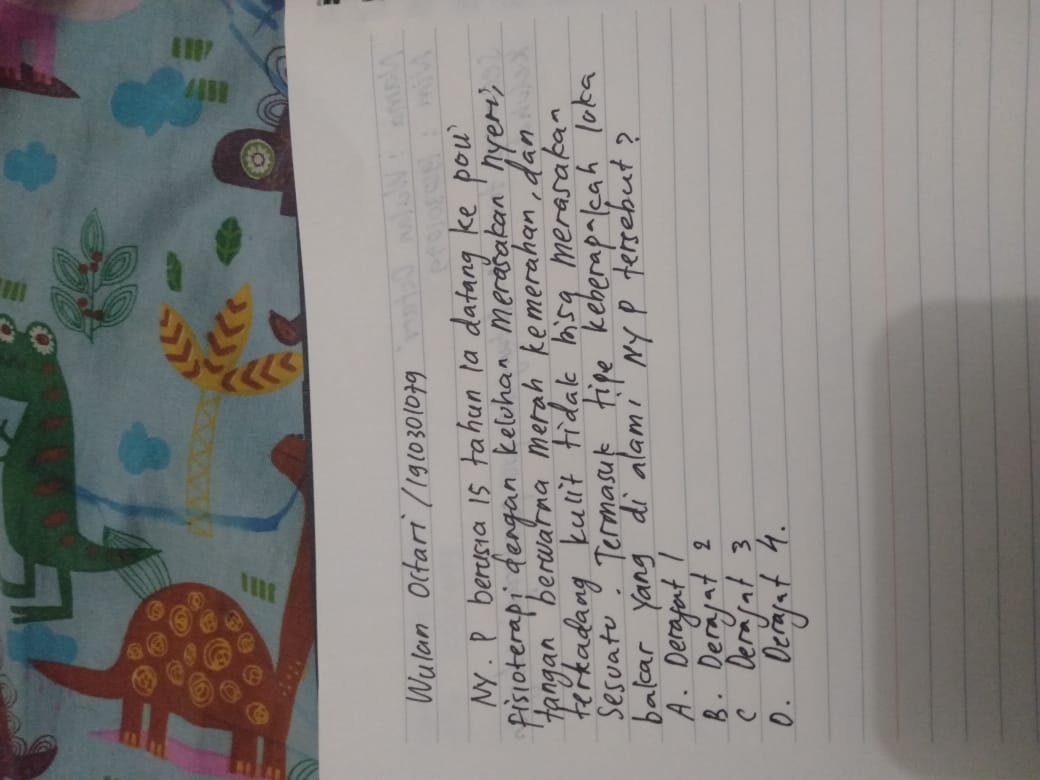 Wulan Octari /1910301079
NY. P berusia 15 tahun Ia datang ke poli
fisioterapi dengan keluhan merasakan nyeri,
tangan berwarna merah kemerahan, dan
terkadang kulit tidak bisa merasakan
Sesuatu. Termasuk tipe keberapakah luka
bakar yang di alami NY P tersebut?
A. Derajat 1
B. Derajat 2
C Derajat 3
D. Derajat 4.